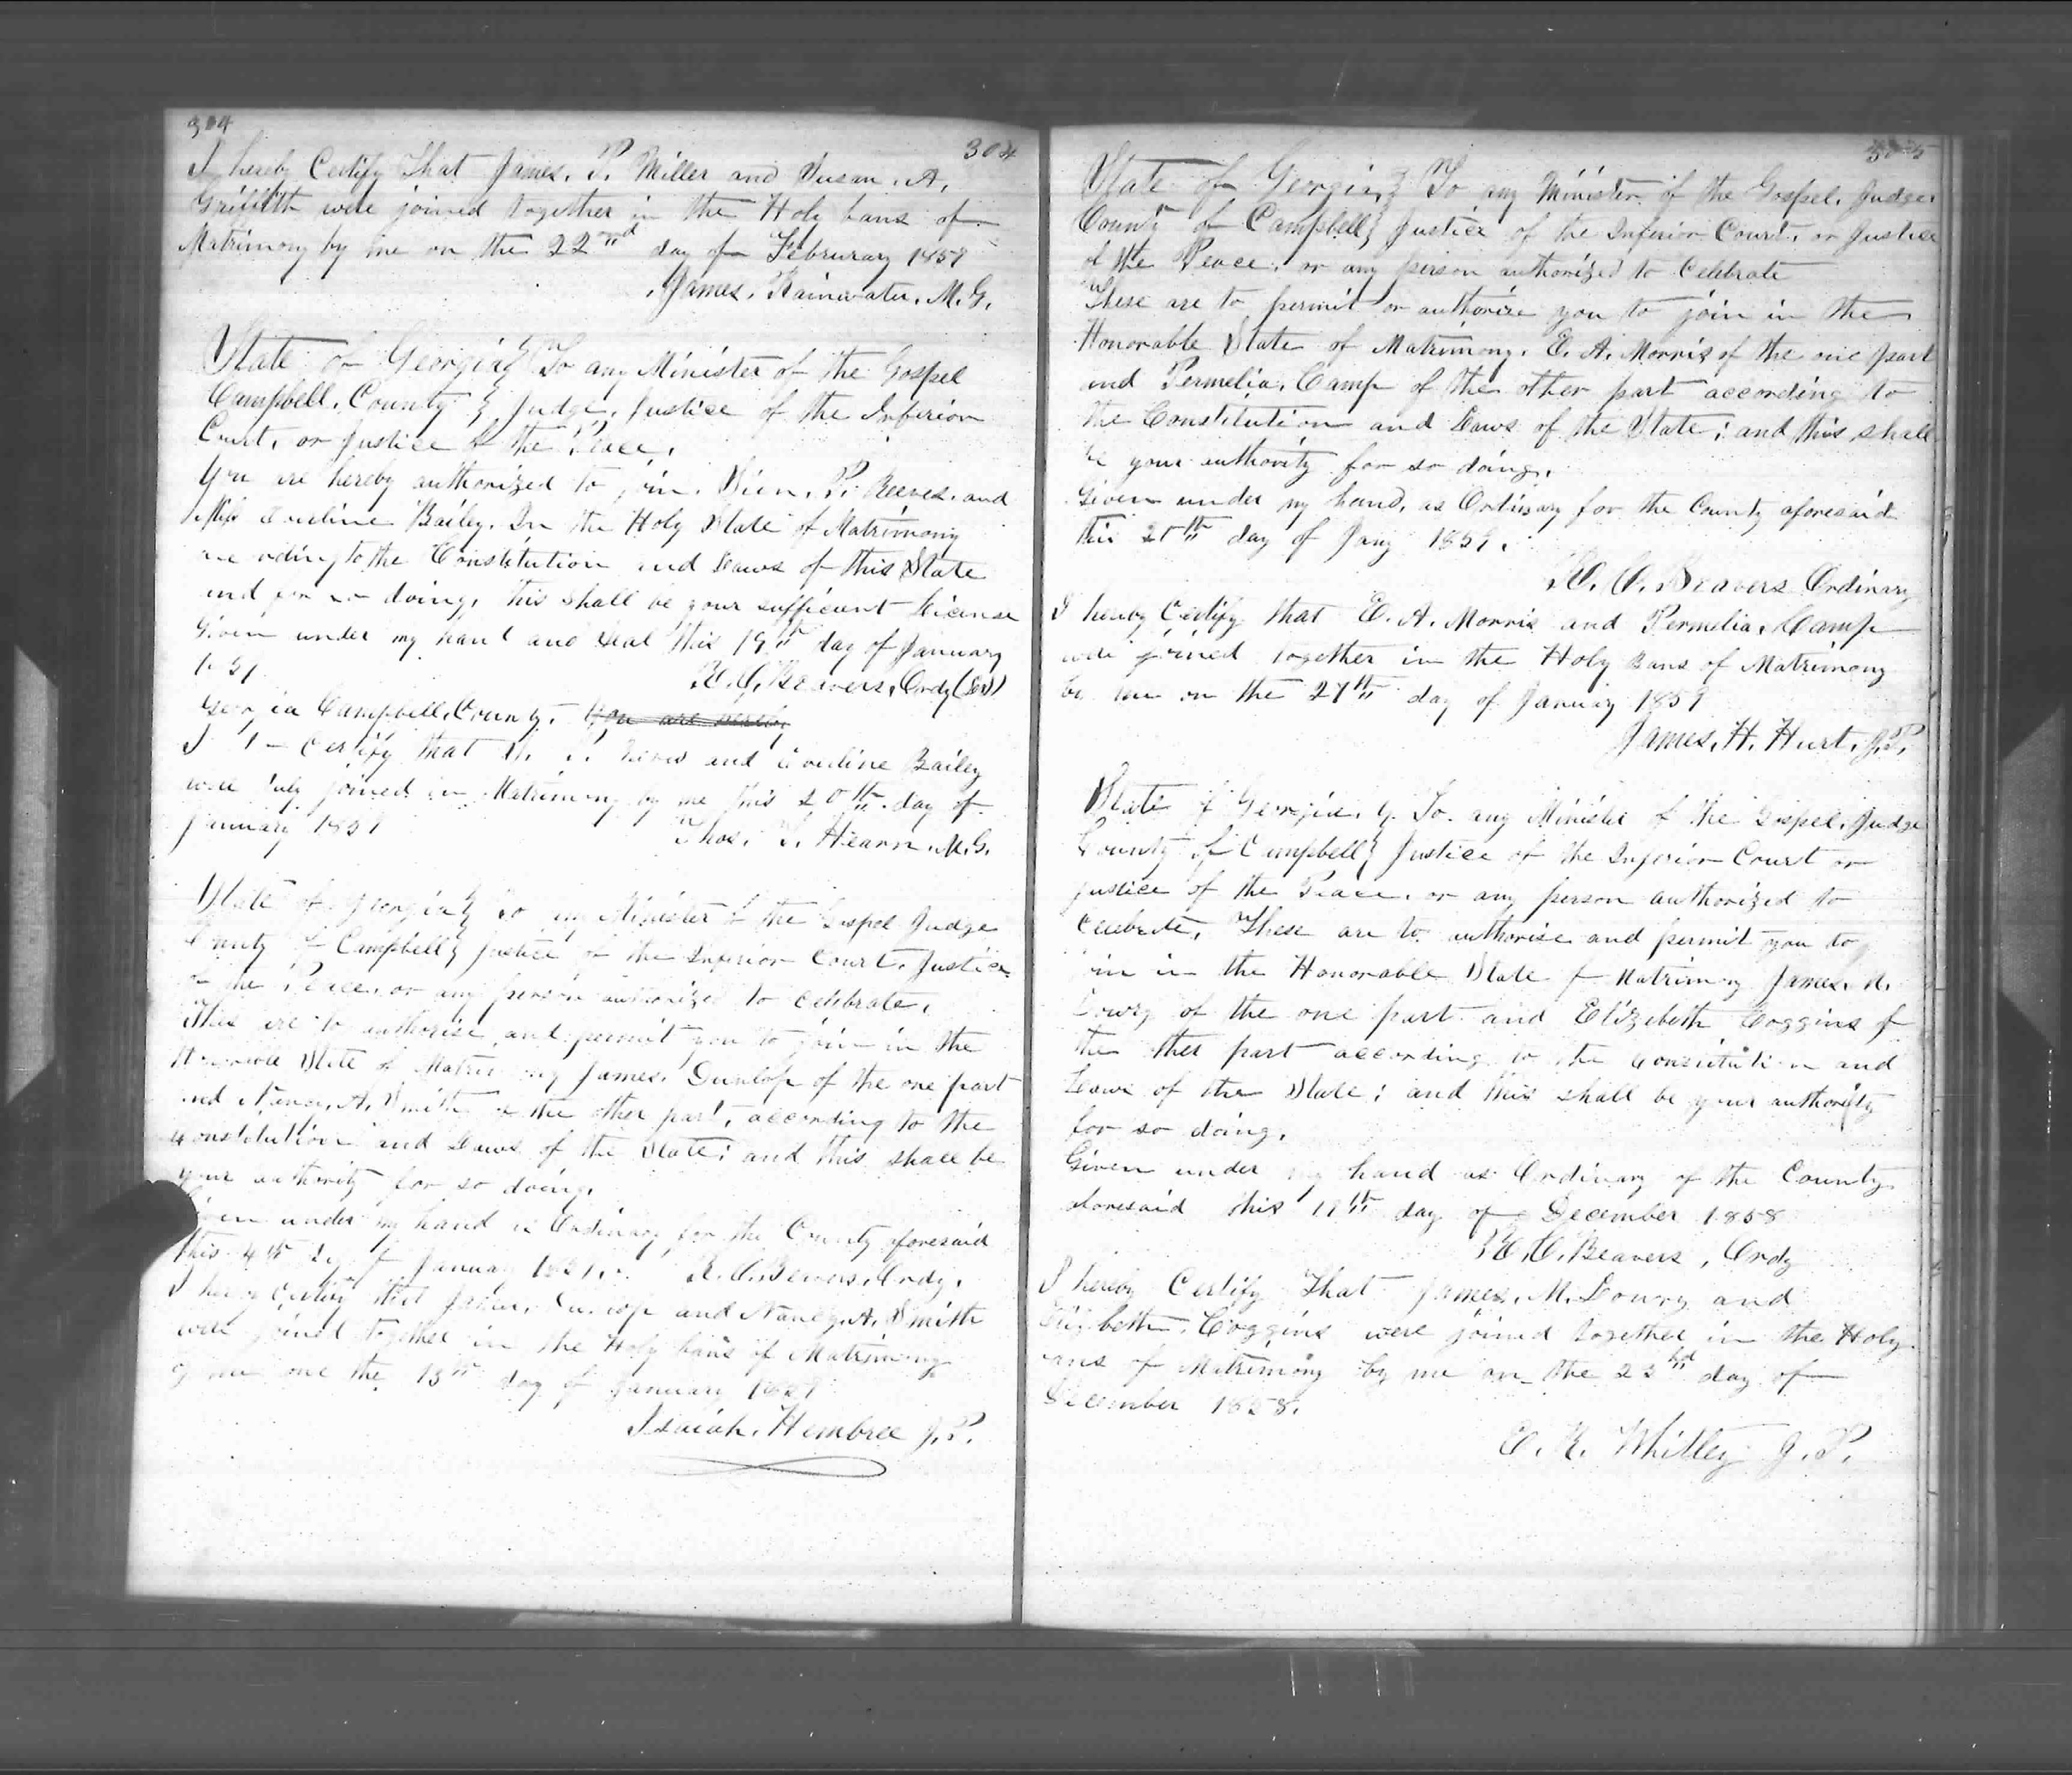 304
304
I hereby Certify That James. P. Miller and Susan. A.
Griffith were joined together in the Holy bans of
Matrimony by me on the 22nd day of Februrary 1859
James. Rainwater. M. G.
State of Georgia } To any Minister of the Gospel
Campbell. County } Judge, Justice of the Inferior
Court, or Justice of the Peace.
You are hereby authorized to join. P. Reeves. and
Miss Bailey. In the Holy State of Matrimony
according to the Constitution and Laws of this State
and for so doing, this shall be your sufficient License
Given under my hand and Seal this 19th day of January
1859 R. C. Beavers, Ordy
Georgia Campbell, County. You are hereby
I certify that and Bailey
were duly joined in Matrimony by me this 20th day of
January 1859 Thos. Hearn. M. G.
State of Georgia } To any Minister of the Gospel Judge
County of Campbell } Justice of the Inferior Court. Justice
of the Peace. or any person authorized to celebrate.
These are to authorise and permit you to join in the
Honorable State of Matrimony James. Dunlop of the one part
and Nancy. A. Smith of the other part, according to the
Constitution and Laws of the State; and this shall be
your authority for so doing.
Given under my hand as Ordinary for the County aforesaid
this 4th day of January 1859. R. C. Bevers. Ordy.
I hereby certify that James. Dunlop and Nancy. A. Smith
were joined together in the Holy bans of Matrimony
by me one the 13th day of January 1859
Isaiah. Hembree J. P.
305
State of Georgia } To any Minister of the Gospel. Judge
County of Campbell } Justice of the Inferior Court. or Justice
of the Peace. or any person authorized to Celebrate
These are to permit or authorize you to join in the
Honorable State of Matrimony. E. A. Morris of the one part
and Permelia. Camp of the other part according to
the Constitution and Laws of the State; and this shall
be your authority for so doing.
Given under my hand, as Ordinary for the County aforesaid
this 25th day of Jany 1859.
R. C. Beavers Ordinary
I hereby Certify that E. A. Morris and Permelia. Camp
were joined together in the Holy Bans of Matrimony
by me on the 27th day of January 1859
James. H. Hurt. J. P.
State of Georgia. } To. any Minister of the Gospel. Judge
County of Campbell } Justice of the Inferior Court or
Justice of the Peace. or any person authorized to
Celebrate, These are to authorise and permit you to
join in the Honorable State of Matrimony James. M.
Lowry of the one part and Elizebeth Coggins of
the other part according to the Constitution and
Laws of the State; and this shall be your authority
for so doing.
Given under my hand as Ordinary of the County
aforesaid this day of December 1858
R. C. Beavers, Ordy
I hereby Certify That James. M. Lowry and
Elizebeth. Coggins were joined together in the Holy
Bans of Matrimony by me on the 23rd day of
December 1858.
Whitley J. P.